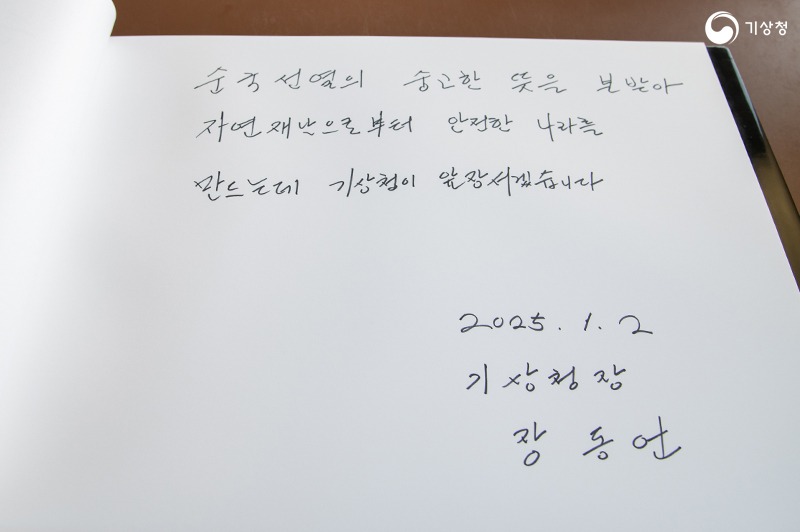 기상청
순국선열의 숭고한 뜻을 본받아
자연재난으로부터 안전한 나라를
만드는데 기상청이 앞장서겠습니다
2025. 1. 2
기상청장
장 동 언